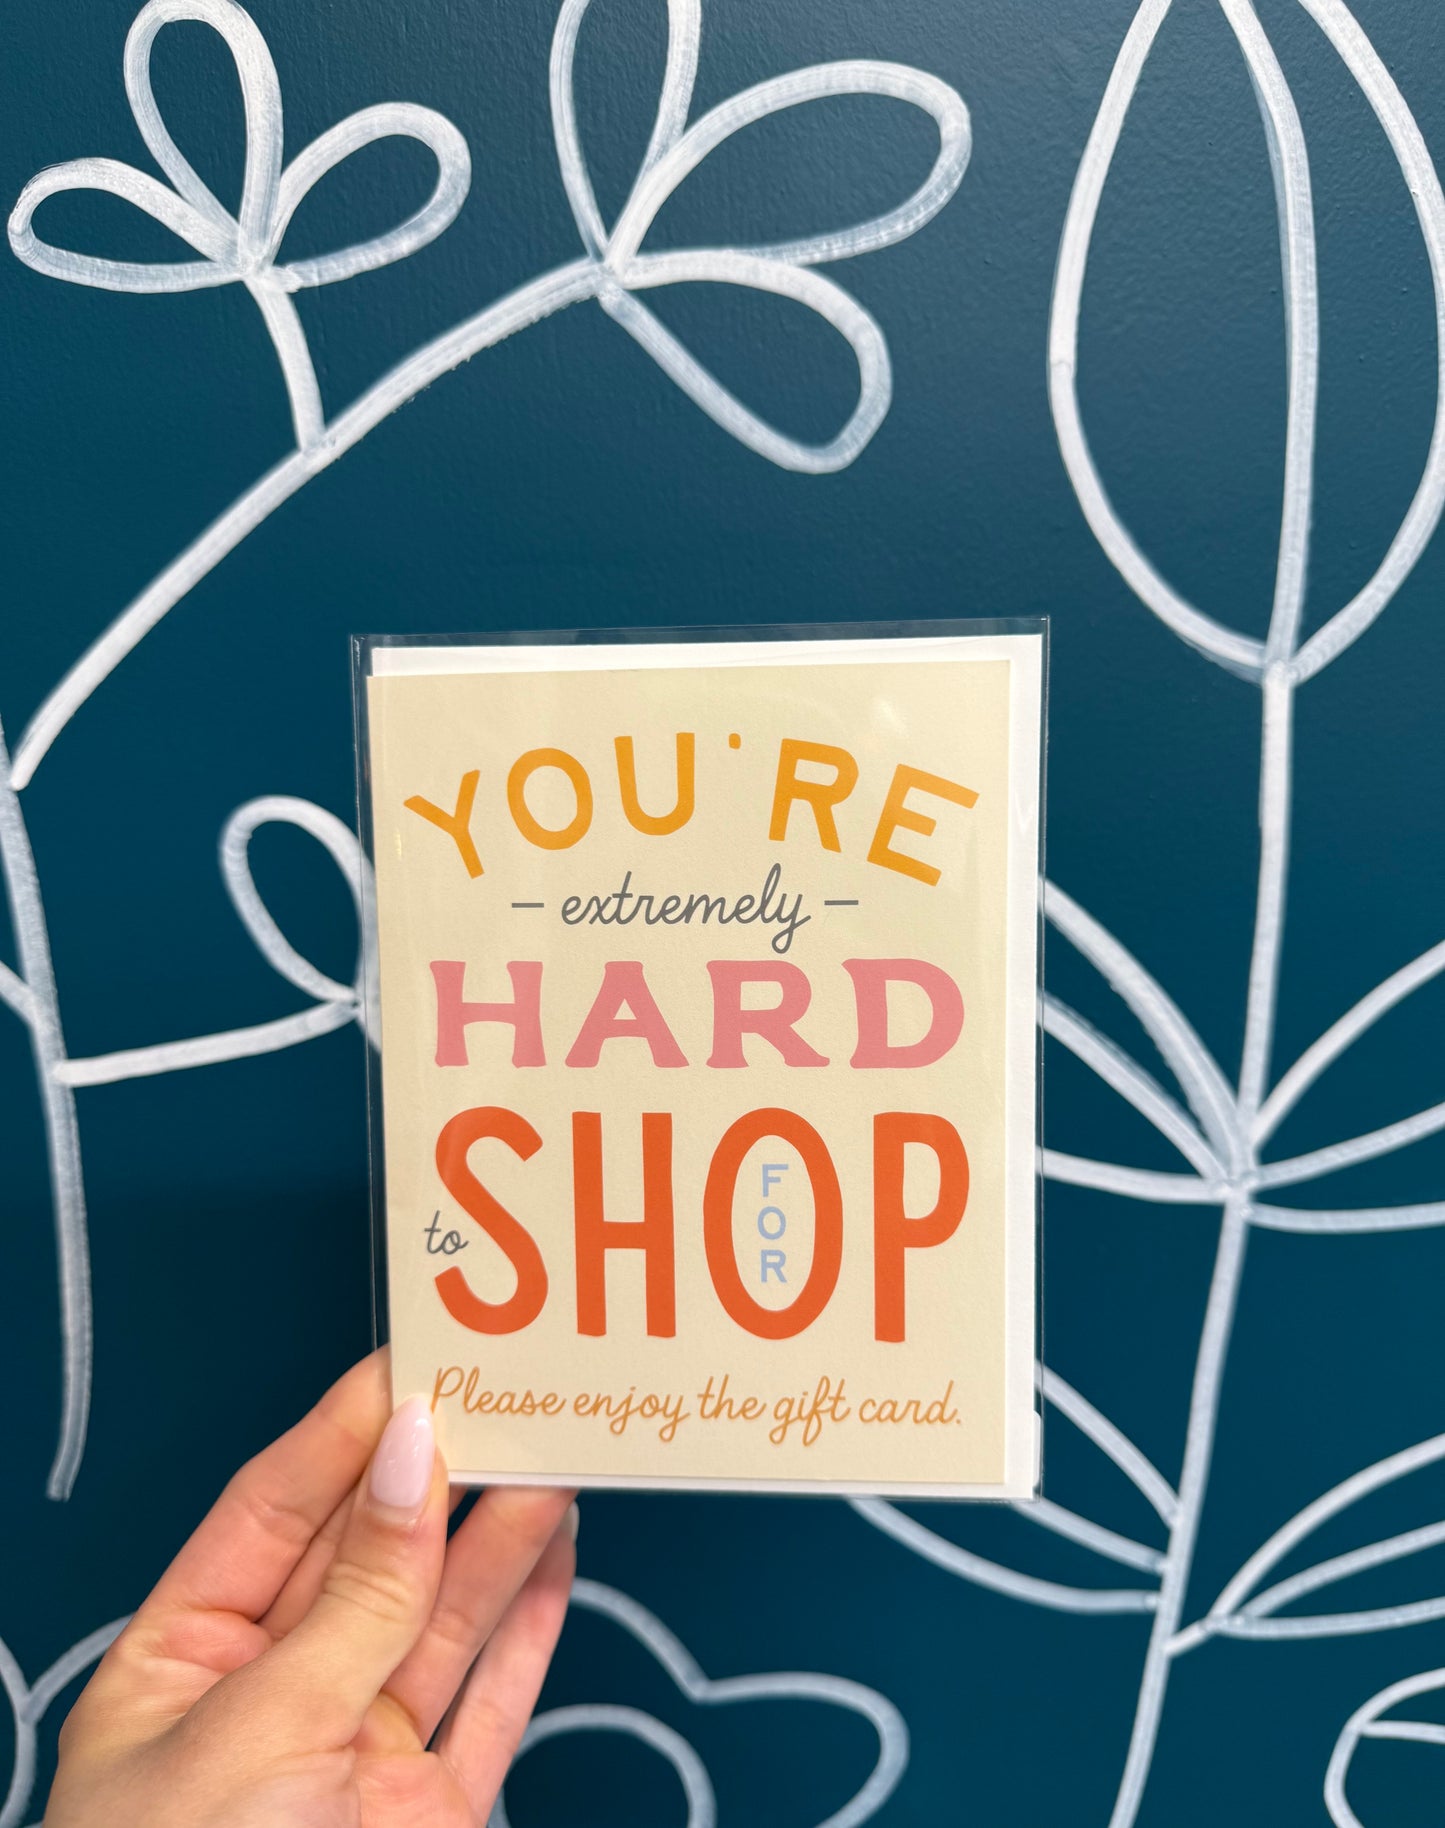 YOU'RE
– extremely –
HARD
to SHOP
FOR
Please enjoy the gift card.